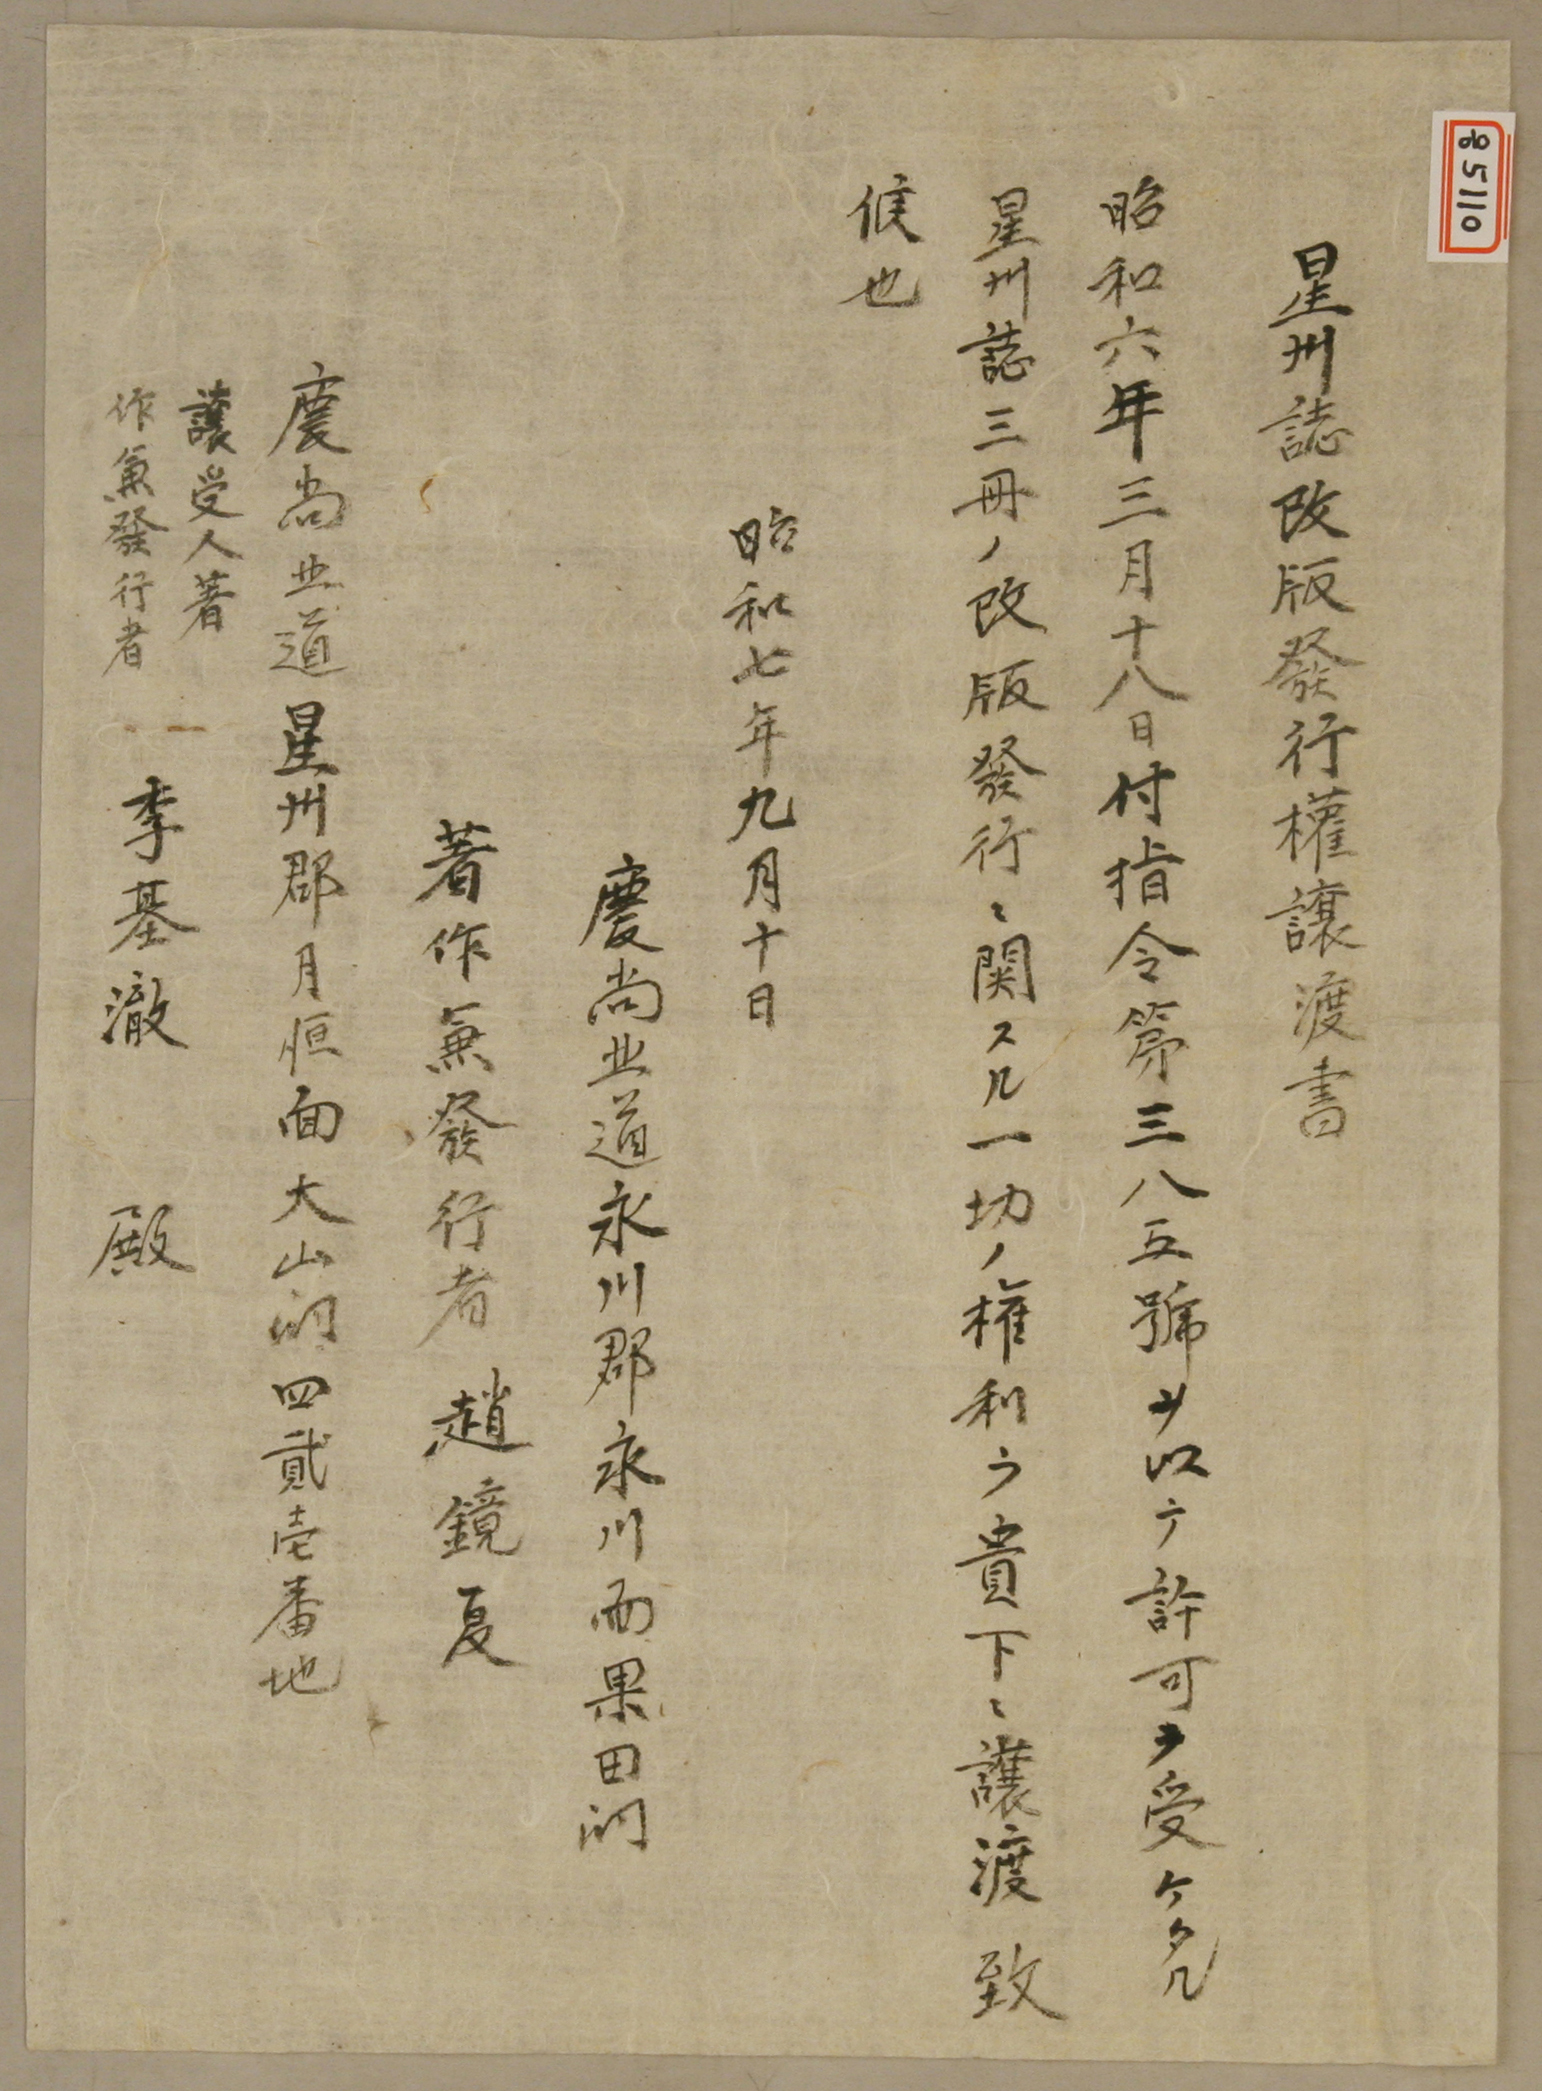 85110
星州誌改版發行權讓渡書
昭和六年三月十八日付指令第三八五號ヲ以テ許可ヲ受ケタル
星州誌三冊ノ改版發行ニ関スル一切ノ権利ヲ貴下ニ讓渡致
候也
昭和七年九月十日
慶尚北道永川郡永川面果田洞
著作兼發行者 趙鏡夏
慶尚北道星州郡月恒面大山洞四貳壱番地
讓受人著
作兼發行者 李基澈 殿